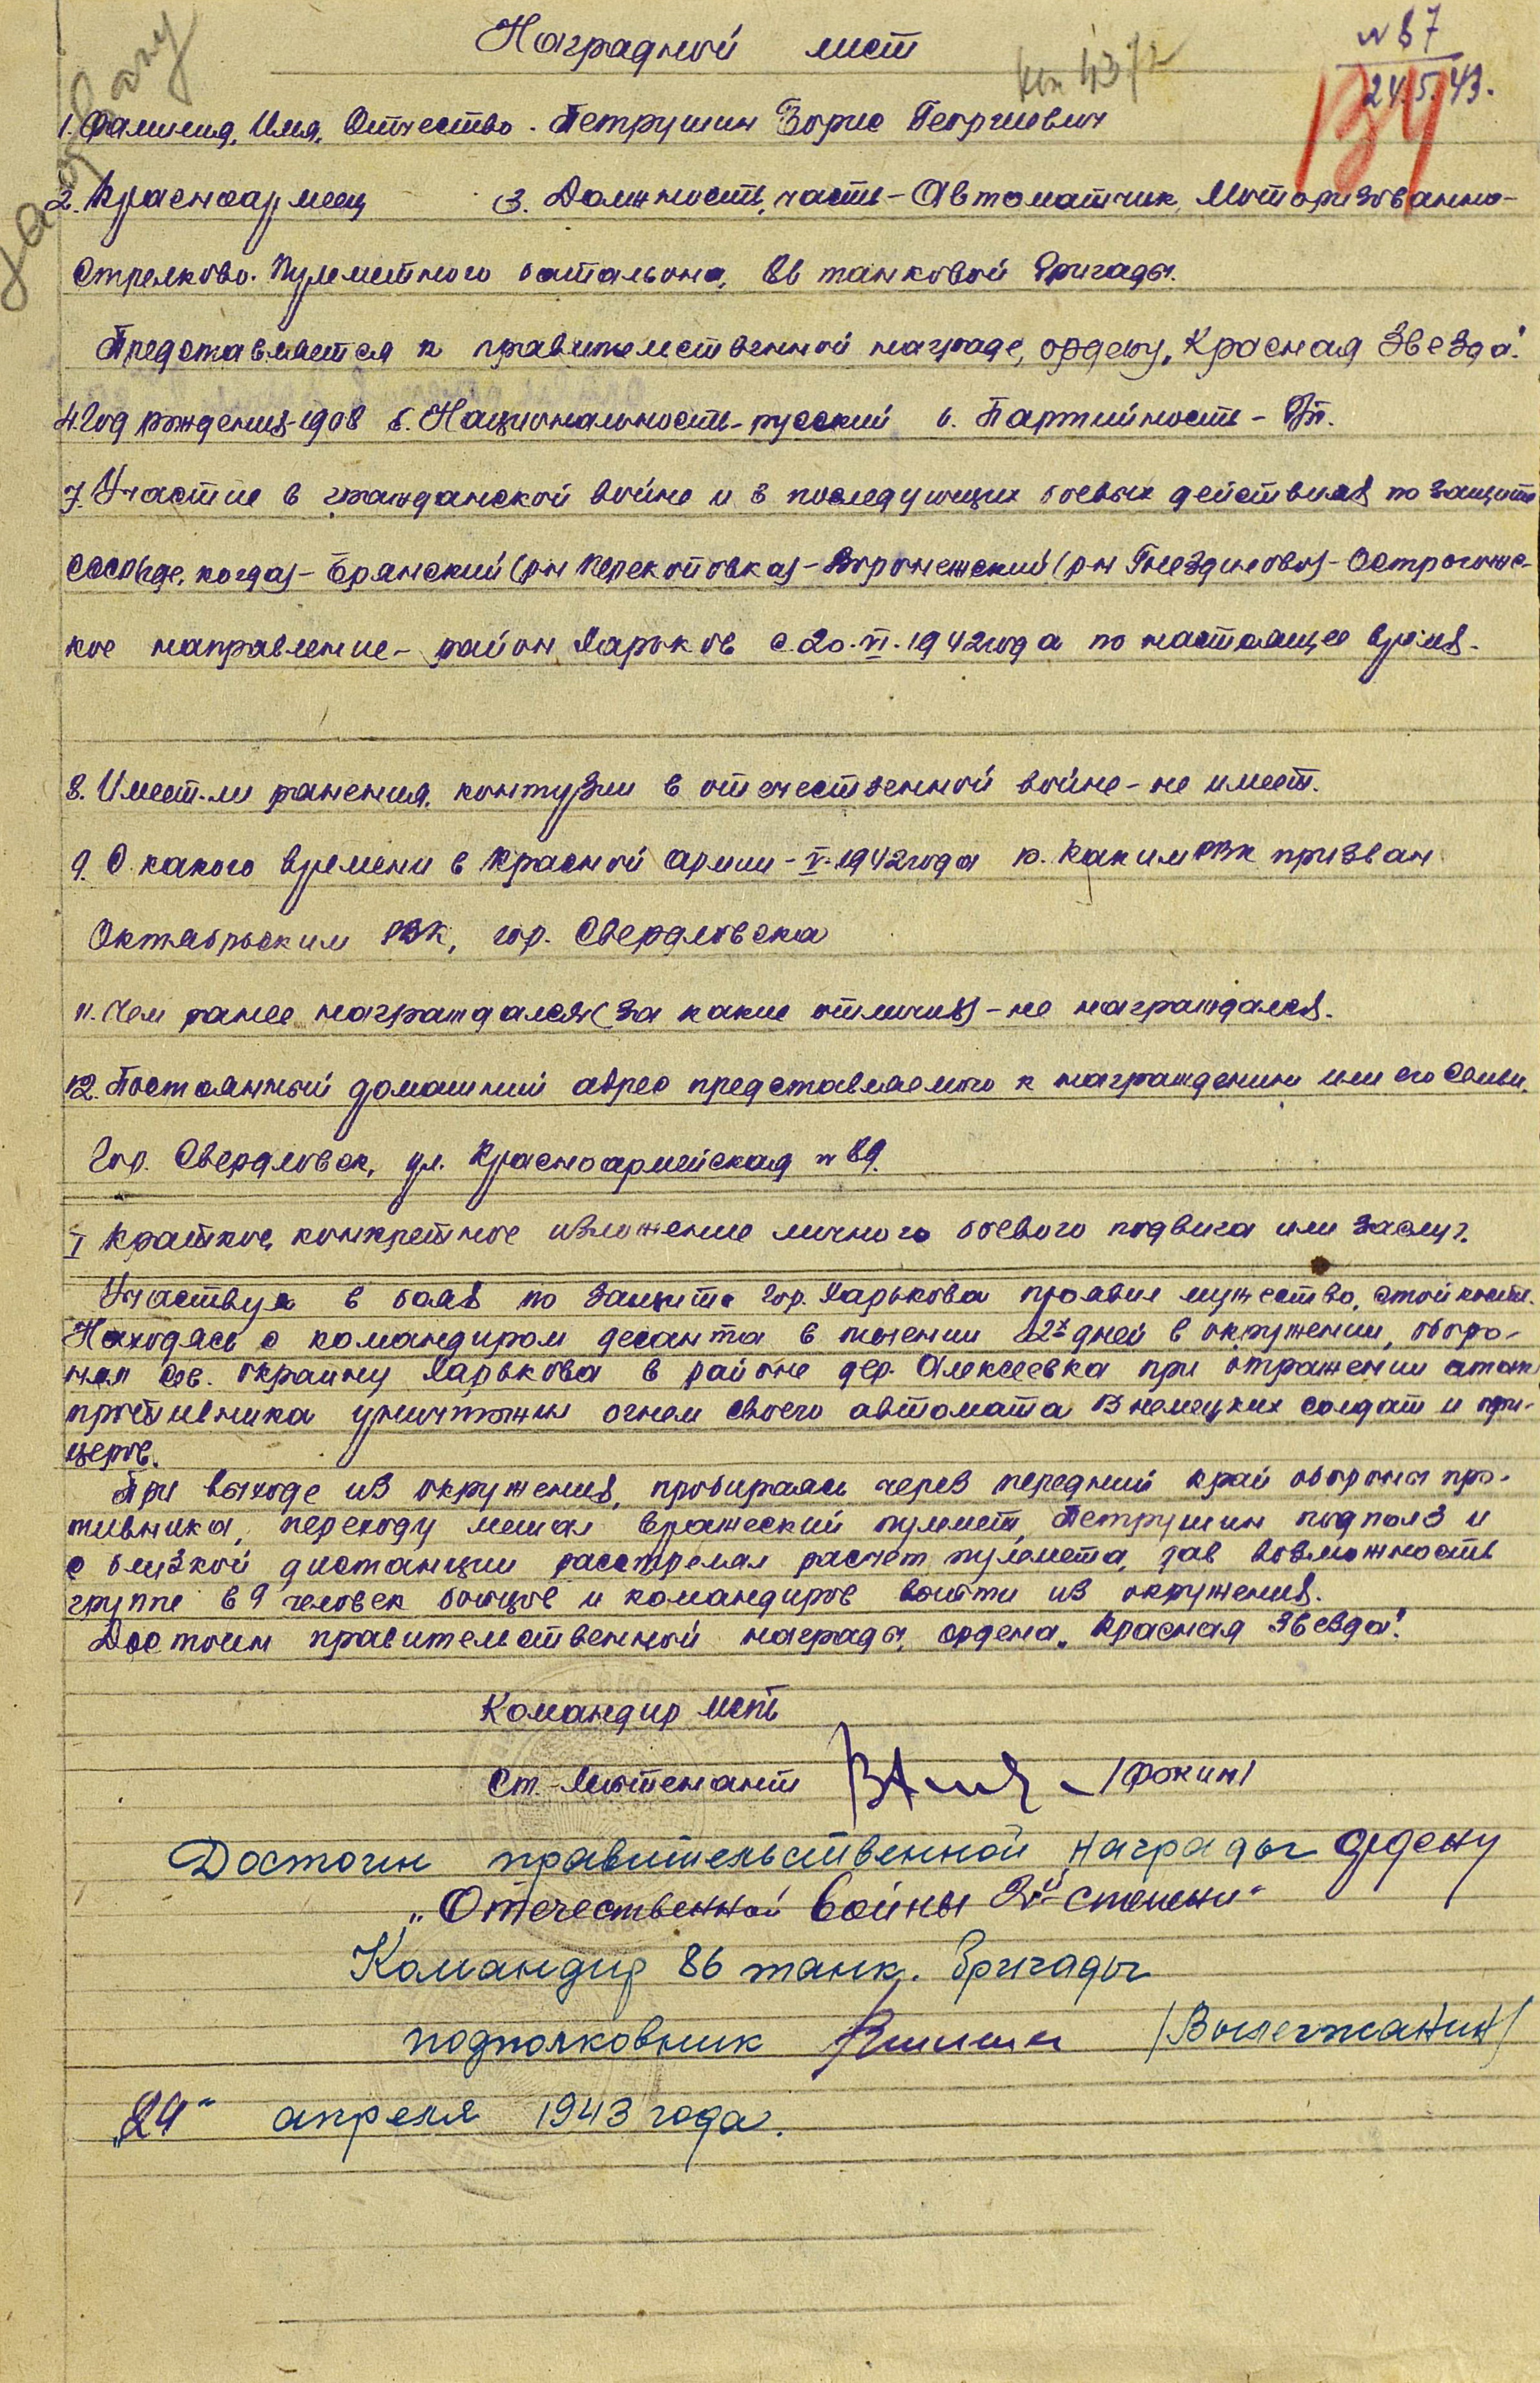 Наградной лист
№ 87
24.5.43.
134
1. Фамилия, Имя, Отчество - Петрушин Борис Георгиевич
2. Красноармеец 3. Должность, часть - Автоматчик, Моторизованно-
Стрелково-Пулеметного батальона, 86 танковой бригады.
Представляется к правительственной награде, ордену „Красная Звезда".
4. Год рождения - 1908 5. Национальность - русский 6. Партийность - б/п.
7. Участие в гражданской войне и в последующих боевых действиях по защите
СССР (где, когда) - Брянский (р-н Перекоповка) - Воронежский (р-н Гнездилово) - Острогожс-
кое направление - район Харьков с 20.VI.1942 года по настоящее время.
8. Имеет-ли ранения, контузии в отечественной войне - не имеет.
9. С какого времени в Красной армии - V.1942 года 10. Каким РВК призван
Октябрьским РВК, гор. Свердловска
11. Чем ранее награждался (за какие отличия) - не награждался.
12. Постоянный домашний адрес представляемого к награждению или его семьи.
Гор. Свердловск, ул. Красноармейская № 89.
I Краткое, конкретное изложение личного боевого подвига или заслуг.
Участвуя в боях по защите гор. Харькова проявил мужество, стойкость.
Находясь с командиром десанта в течении 2х дней в окружении, оборо-
нял сев. окраину Харькова в районе дер. Алексеевка при отражении атак
противника уничтожил огнем своего автомата 13 немецких солдат и офи-
церов.
При выходе из окружения, пробираясь через передний край обороны про-
тивника, переходу мешал вражеский пулемет, Петрушин подполз и
с близкой дистанции расстрелял расчет пулемета, дав возможность
группе в 9 человек бойцов и командиров выйти из окружения.
Достоин правительственной награды, ордена „Красная Звезда".
Командир мспб
Ст.-Лейтенант /Фокин/
Достоин правительственной награды ордену
„Отечественной войны 2й степени"
Командир 86 танк. бригады
подполковник /Вылегжанин/
„24" апреля 1943 года.